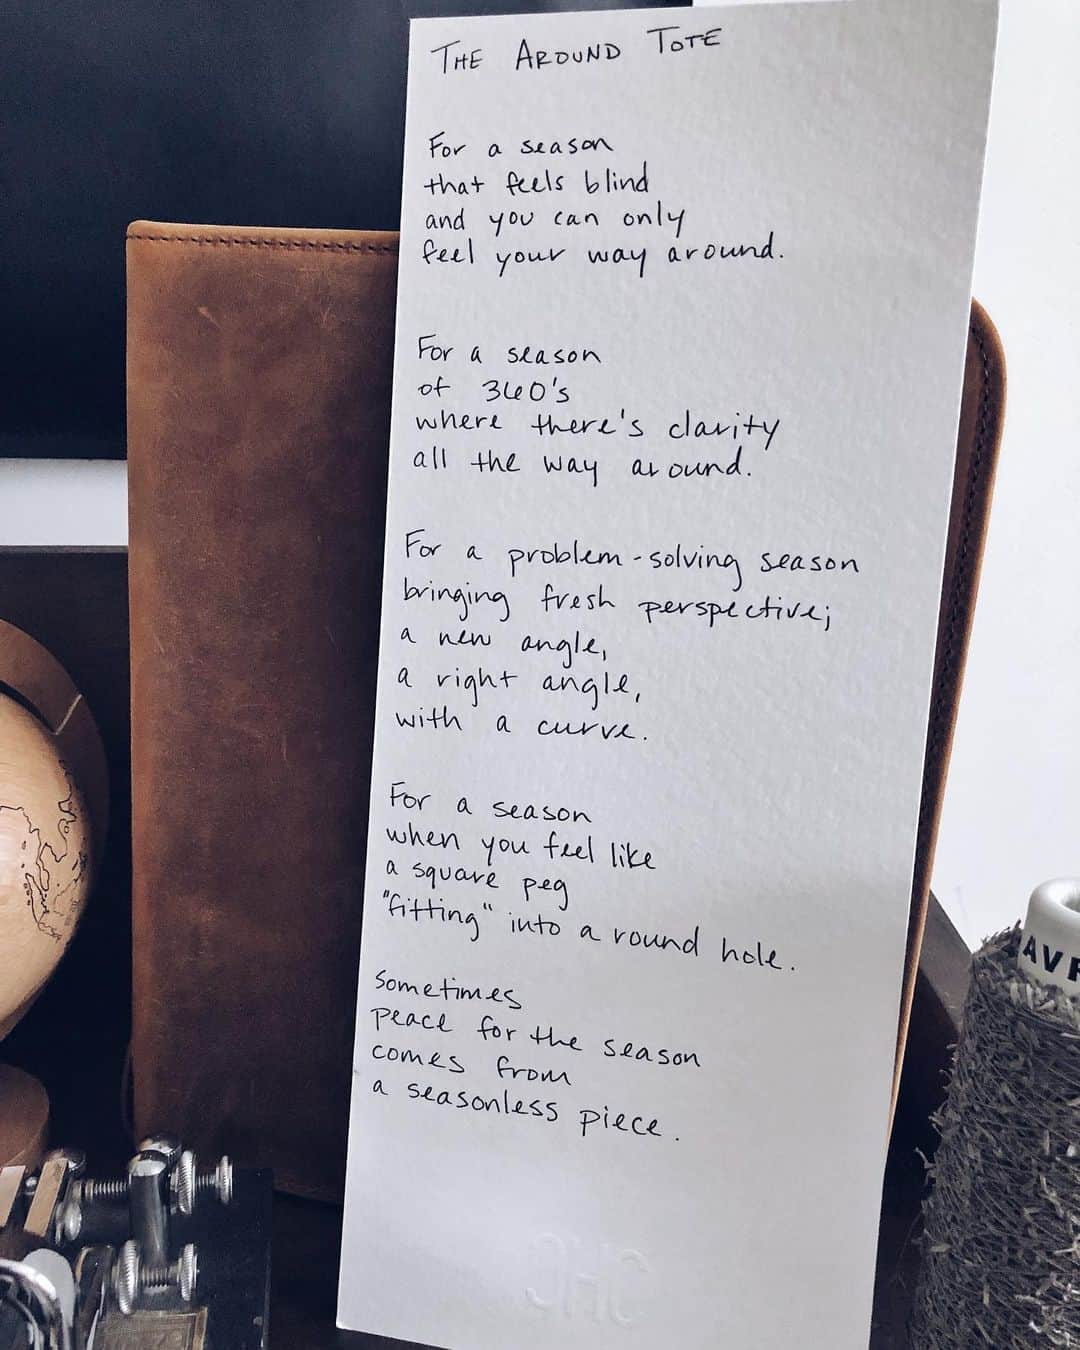 THE AROUND TOTE
For a season
that feels blind
and you can only
feel your way around.
For a season
of 360's
where there's clarity
all the way around.
For a problem-solving season
bringing fresh perspective;
a new angle,
a right angle,
with a curve.
For a season
when you feel like
a square peg
"fitting" into a round hole.
sometimes
peace for the season
comes from
a seasonless piece.